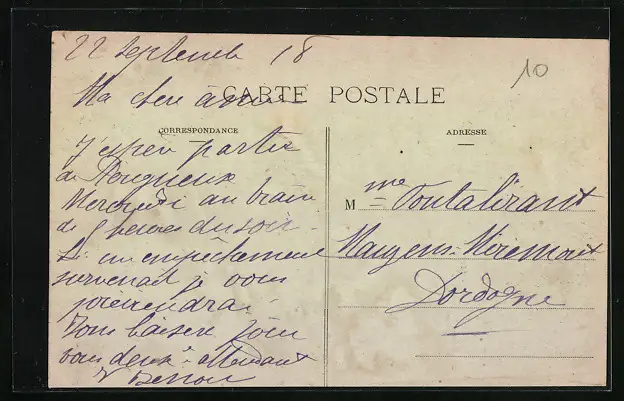 22 Septembre 18
10
Ma chère amie
CARTE POSTALE
CORRESPONDANCE
J'espère partir
de Périgueux
Mercredi au train
de 8 heures du soir.
Si un empêchement
survenait je vous
préviendrai
Vous baisse
vous deux
ADRESSE
Mme Fontalirant
Mauzens-Miremont
Dordogne